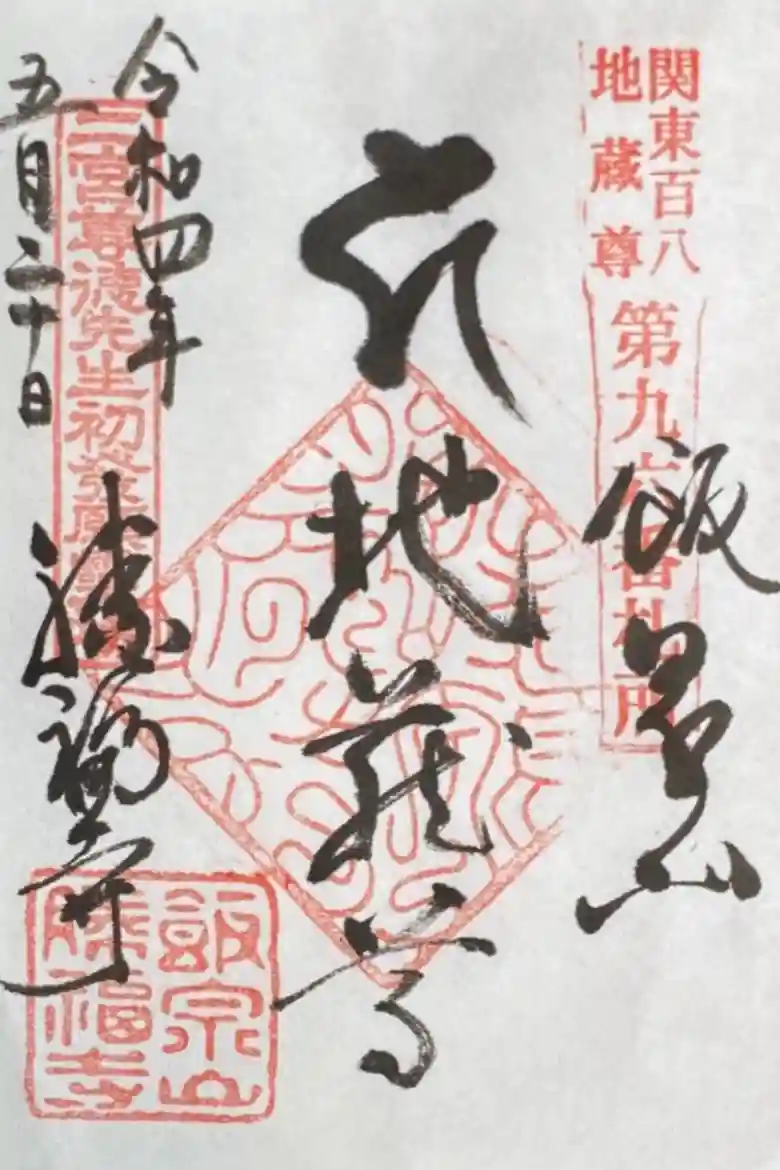 関東百八
地蔵尊
第九六番札所
飯泉山
六地蔵尊
令和四年
五月二十日
二宮尊徳先生初發願
勝福寺
飯泉山
勝福寺